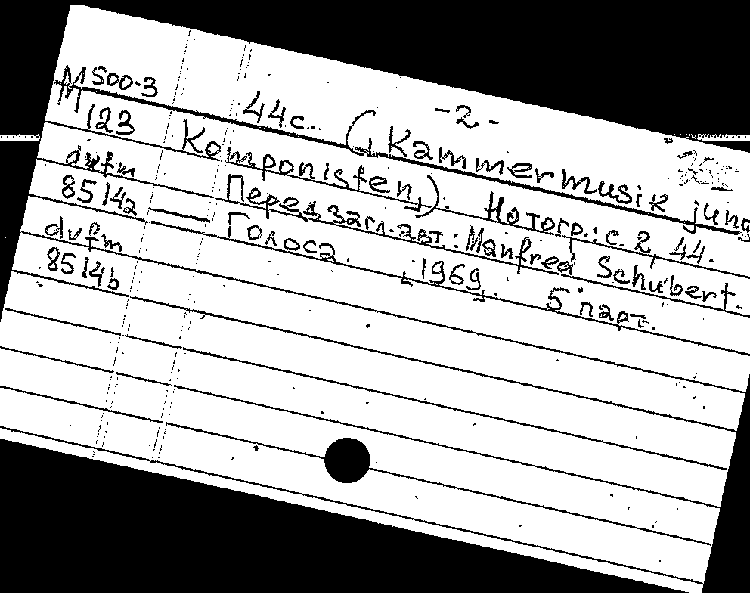 -2-
М 500-3
123
44с. (⌊Kammermusik jung
Komponisten⌋). Нотогр.: с. 2, 44.
dvfm
8514a
Перед загл. авт.: Manfred Schubert.
— Голоса. ⌊1969⌋. 5 парт.
dvfm
8514b